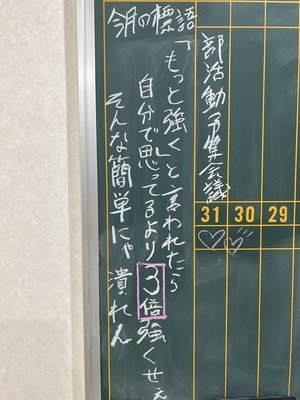 部活動予算会議
31 30 29
今月の標語
「もっと強く」と言われたら
自分で思ってるより3倍強くせぇ
そんな簡単にゃ潰れん